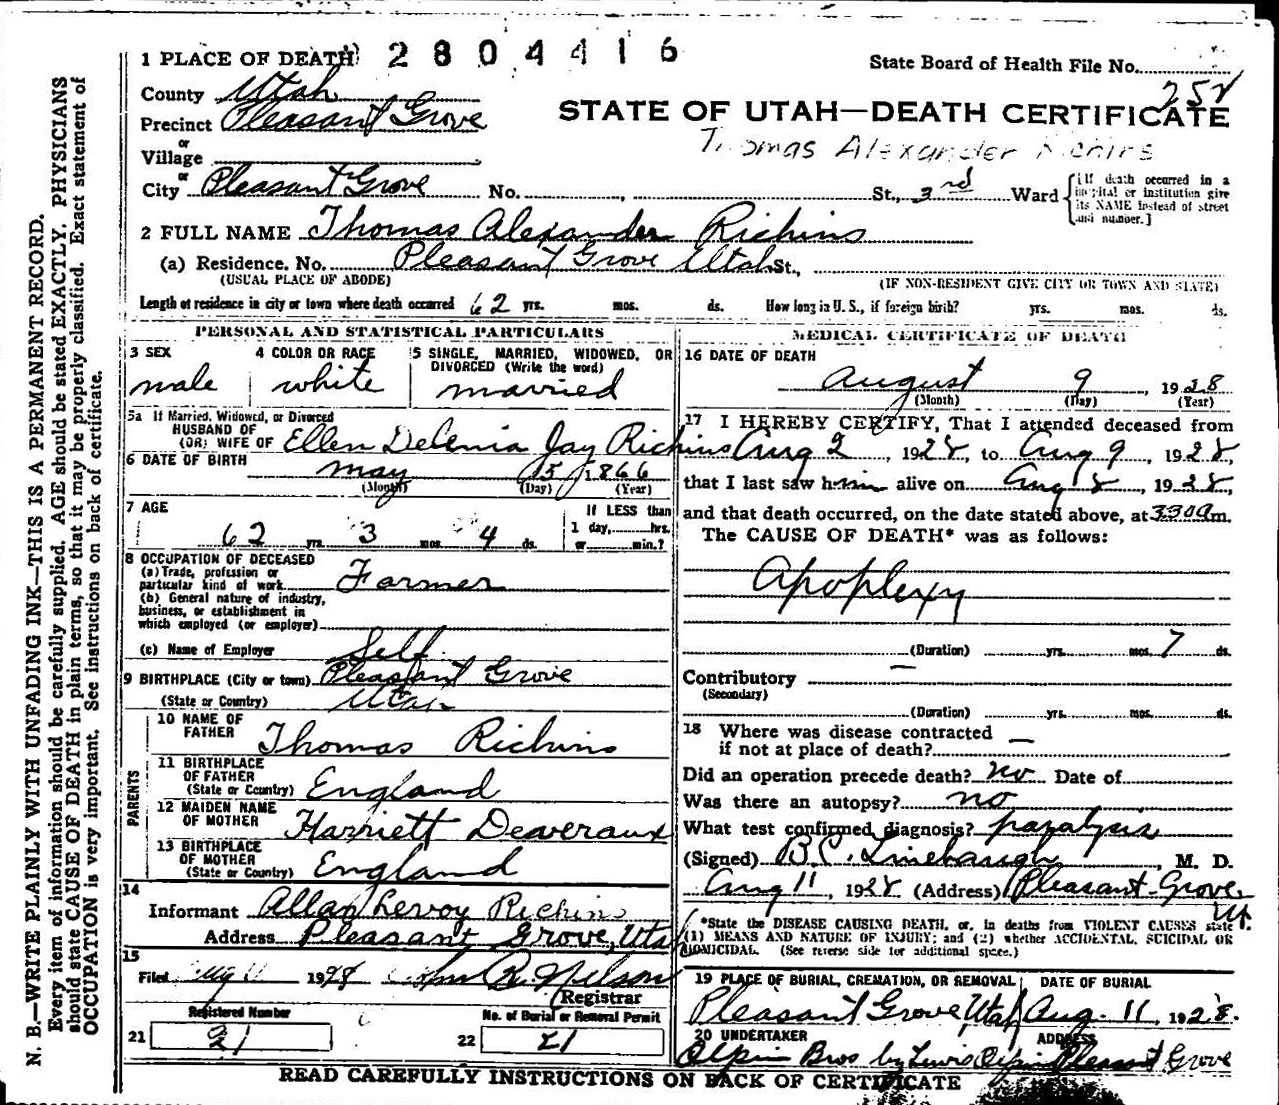 N. B.—WRITE PLAINLY WITH UNFADING INK—THIS IS A PERMANENT RECORD.
Every item of information should be carefully supplied. AGE should be stated EXACTLY. PHYSICIANS
should state CAUSE OF DEATH in plain terms, so that it may be properly classified. Exact statement of
OCCUPATION is very important. See instructions on back of certificate.
1 PLACE OF DEATH 2804416
State Board of Health File No. 252
County Utah
STATE OF UTAH—DEATH CERTIFICATE
Precinct Pleasant Grove
Thomas Alexander Richins
or
Village
or
City Pleasant Grove No. , St., 3rd Ward
{If death occurred in a
hospital or institution give
its NAME instead of street
and number.]
2 FULL NAME Thomas Alexander Richins
(a) Residence. No. Pleasant Grove Utah St.,
(USUAL PLACE OF ABODE) (IF NON-RESIDENT GIVE CITY OR TOWN AND STATE)
Length of residence in city or town where death occurred 62 yrs. mos. ds. How long in U. S., if foreign birth? yrs. mos. ds.
PERSONAL AND STATISTICAL PARTICULARS
3 SEX 4 COLOR OR RACE 5 SINGLE, MARRIED, WIDOWED, OR
DIVORCED (Write the word)
male white married
5a If Married, Widowed, or Divorced
HUSBAND OF
(OR) WIFE OF Ellen Delenia Jay Richins
6 DATE OF BIRTH May 5 1866
(Month) (Day) (Year)
7 AGE If LESS than
62 yrs. 3 mos. 4 ds. 1 day, hrs.
or min.?
8 OCCUPATION OF DECEASED
(a) Trade, profession or
particular kind of work Farmer
(b) General nature of industry,
business, or establishment in
which employed (or employer)
(c) Name of Employer Self
9 BIRTHPLACE (City or town) Pleasant Grove
(State or Country) Utah
PARENTS
10 NAME OF
FATHER Thomas Richins
11 BIRTHPLACE
OF FATHER
(State or Country) England
12 MAIDEN NAME
OF MOTHER Harriett Deaveraux
13 BIRTHPLACE
OF MOTHER
(State or Country) England
14
Informant Allan Leroy Richins
Address Pleasant Grove, Utah
15
Filed Aug 11 1928 John B. Nelson
Registrar
Registered Number No. of Burial or Removal Permit
21 21 22 21
MEDICAL CERTIFICATE OF DEATH
16 DATE OF DEATH
August 9 1928
(Month) (Day) (Year)
17 I HEREBY CERTIFY, That I attended deceased from
Aug 2, 1928, to Aug 9, 1928,
that I last saw him alive on Aug 8, 1928,
and that death occurred, on the date stated above, at 330a m.
The CAUSE OF DEATH* was as follows:
Apoplexy
(Duration) yrs. mos. 7 ds.
Contributory —
(Secondary)
(Duration) yrs. mos. ds.
18 Where was disease contracted
if not at place of death? —
Did an operation precede death? no Date of
Was there an autopsy? no
What test confirmed diagnosis? paralysis
(Signed) B. C. Linebaugh, M. D.
Aug 11, 1928 (Address) Pleasant Grove
Ut.
*State the DISEASE CAUSING DEATH, or, in deaths from VIOLENT CAUSES state
(1) MEANS AND NATURE OF INJURY; and (2) whether ACCIDENTAL, SUICIDAL OR
HOMICIDAL. (See reverse side for additional space.)
19 PLACE OF BURIAL, CREMATION, OR REMOVAL DATE OF BURIAL
Pleasant Grove, Utah Aug. 11, 1928.
20 UNDERTAKER ADDRESS
Olpin Bros by Lewis Olpin Pleasant Grove
READ CAREFULLY INSTRUCTIONS ON BACK OF CERTIFICATE